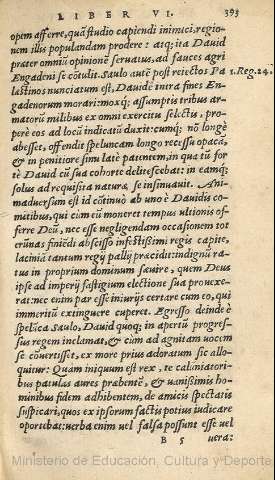 LIBER VI. 393
opem afferre, quã studio capiendi inimici, regio-
nem illis populandam prodere: atq; ita Dauid
præter omniũ opinionẽ seruatus, ad fauces agri
Engadeni se cõtulit. Saulo autẽ post reiectos Pa
1. Reg. 24.
læstinos nunciatum est, Dauidẽ intra fines En-
gadenorum morari: mox q; assumptis tribus ar-
matorũ milibus ex omni exercitu selectis, pro-
perè eos ad locũ indicatũ duxit: cumq; nõ longè
abesset, offendit speluncam longo recessu opacã,
& in penitiore sinu latè patentem, in qua tũ for
tè Dauid cũ sua cohorte delitescebat: in eamq;
solus ad requisita naturæ, se insinuauit. Ani-
maduersum est id cõtinuò ab uno è Dauidis co-
mitibus, qui cum eũ moneret tempus ultionis of-
ferre Deũ, nec esse negligendam occasionem tot
ærũnas finiẽdi abscisso infestissimi regis capite,
laciniã tantum regij pallij præcidit: indignũ ra-
tus in proprium dominum sæuire, quem Deus
ipse ad imperij fastigium electione sua prouexe-
rat: nec enim par esse iniurijs certare cum eo, qui
immeritũ extinguere cuperet. Egresso deinde è
spelũca Saulo, Dauid quoq; in apertũ progres-
sus regem inclamat, & cùm ad agnitam uocem
se cõuertisset, ex more prius adoratum sic allo-
quitur: Quàm iniquum est rex, te calũniatori-
bus patulas aures præbentẽ, & uanissimis ho-
minibus fidem adhibentem, de amicis spectatis
suspicari, quos ex ipsorum factis potius iudicare
oportebat: uerba enim uel falsa possunt esse uel
B 5 uera:
Ministerio de Educación, Cultura y Deporte